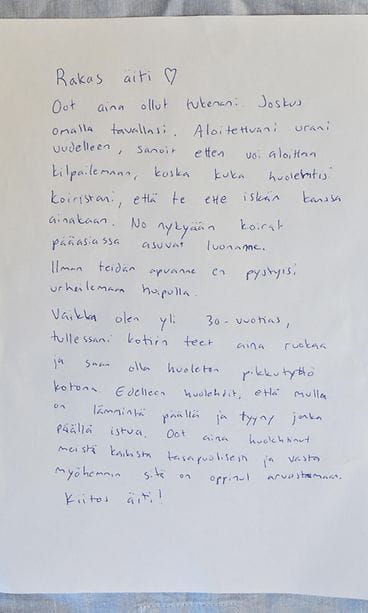 Rakas äiti ♡
Oot aina ollut tukenani. Joskus
omalla tavallasi. Aloitettuani urani
uudelleen, sanoit etten voi aloittaa
kilpailemaan, koska kuka huolehtis
koiristani, että te ette iskän kanssa
ainakaan. No nykyään koirat
pääasiassa asuvat luonanne.
Ilman teidän apuanne en pystyisi
urheilemaan huipulla.
Vaikka olen yli 30-vuotias,
tullessani kotiin teet aina ruokaa
ja saan olla huoleton pikkutyttö
kotona. Edelleen huolehdit, että mulla
on lämmintä päällä ja tyyny jonka
päällä istua. Oot aina huolehtinut
meistä kaikista tasapuolisesti ja vasta
myöhemmin sitä on oppinut arvostamaan.
Kiitos äiti!